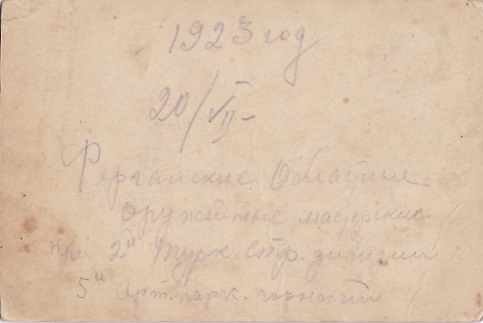 1923 год
20/VII-
Ферганские Областные
оружейные мастерские
при 2й Турк. стр. дивизии
5й арт. парк.